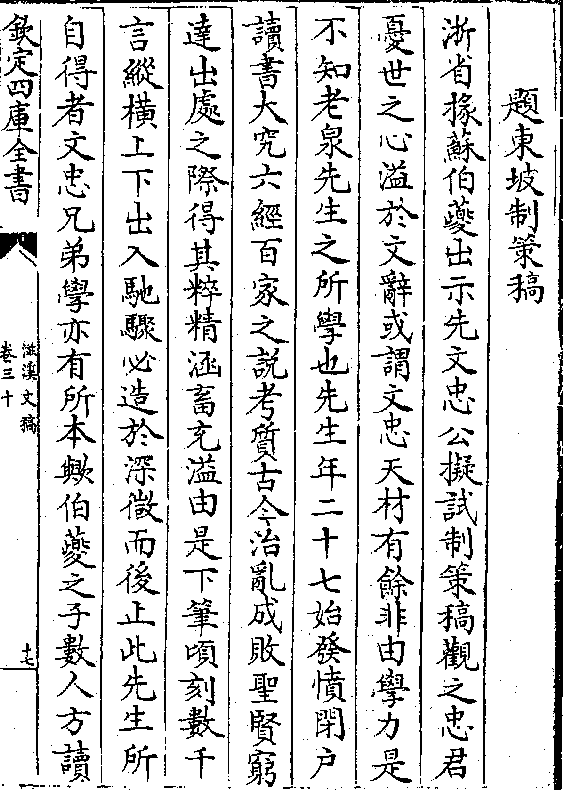 題東坡制策稿
浙省掾蘇伯夔出示先文忠公擬試制策稿觀之忠君
憂世之心溢於文辭或謂文忠天材有餘非由學力是
不知老泉先生之所學也先生年二十七始發憤閉户
讀書大究六經百家之説考質古今治亂成敗聖賢窮
達出處之際得其粹精涵畜充溢由是下筆頃刻數千
言縱横上下出入馳驟必造於深微而後止此先生所
自得者文忠兄弟學亦有所本歟伯夔之子數人方讀
欽定四庫全書
滋溪文稿
卷三十
十七